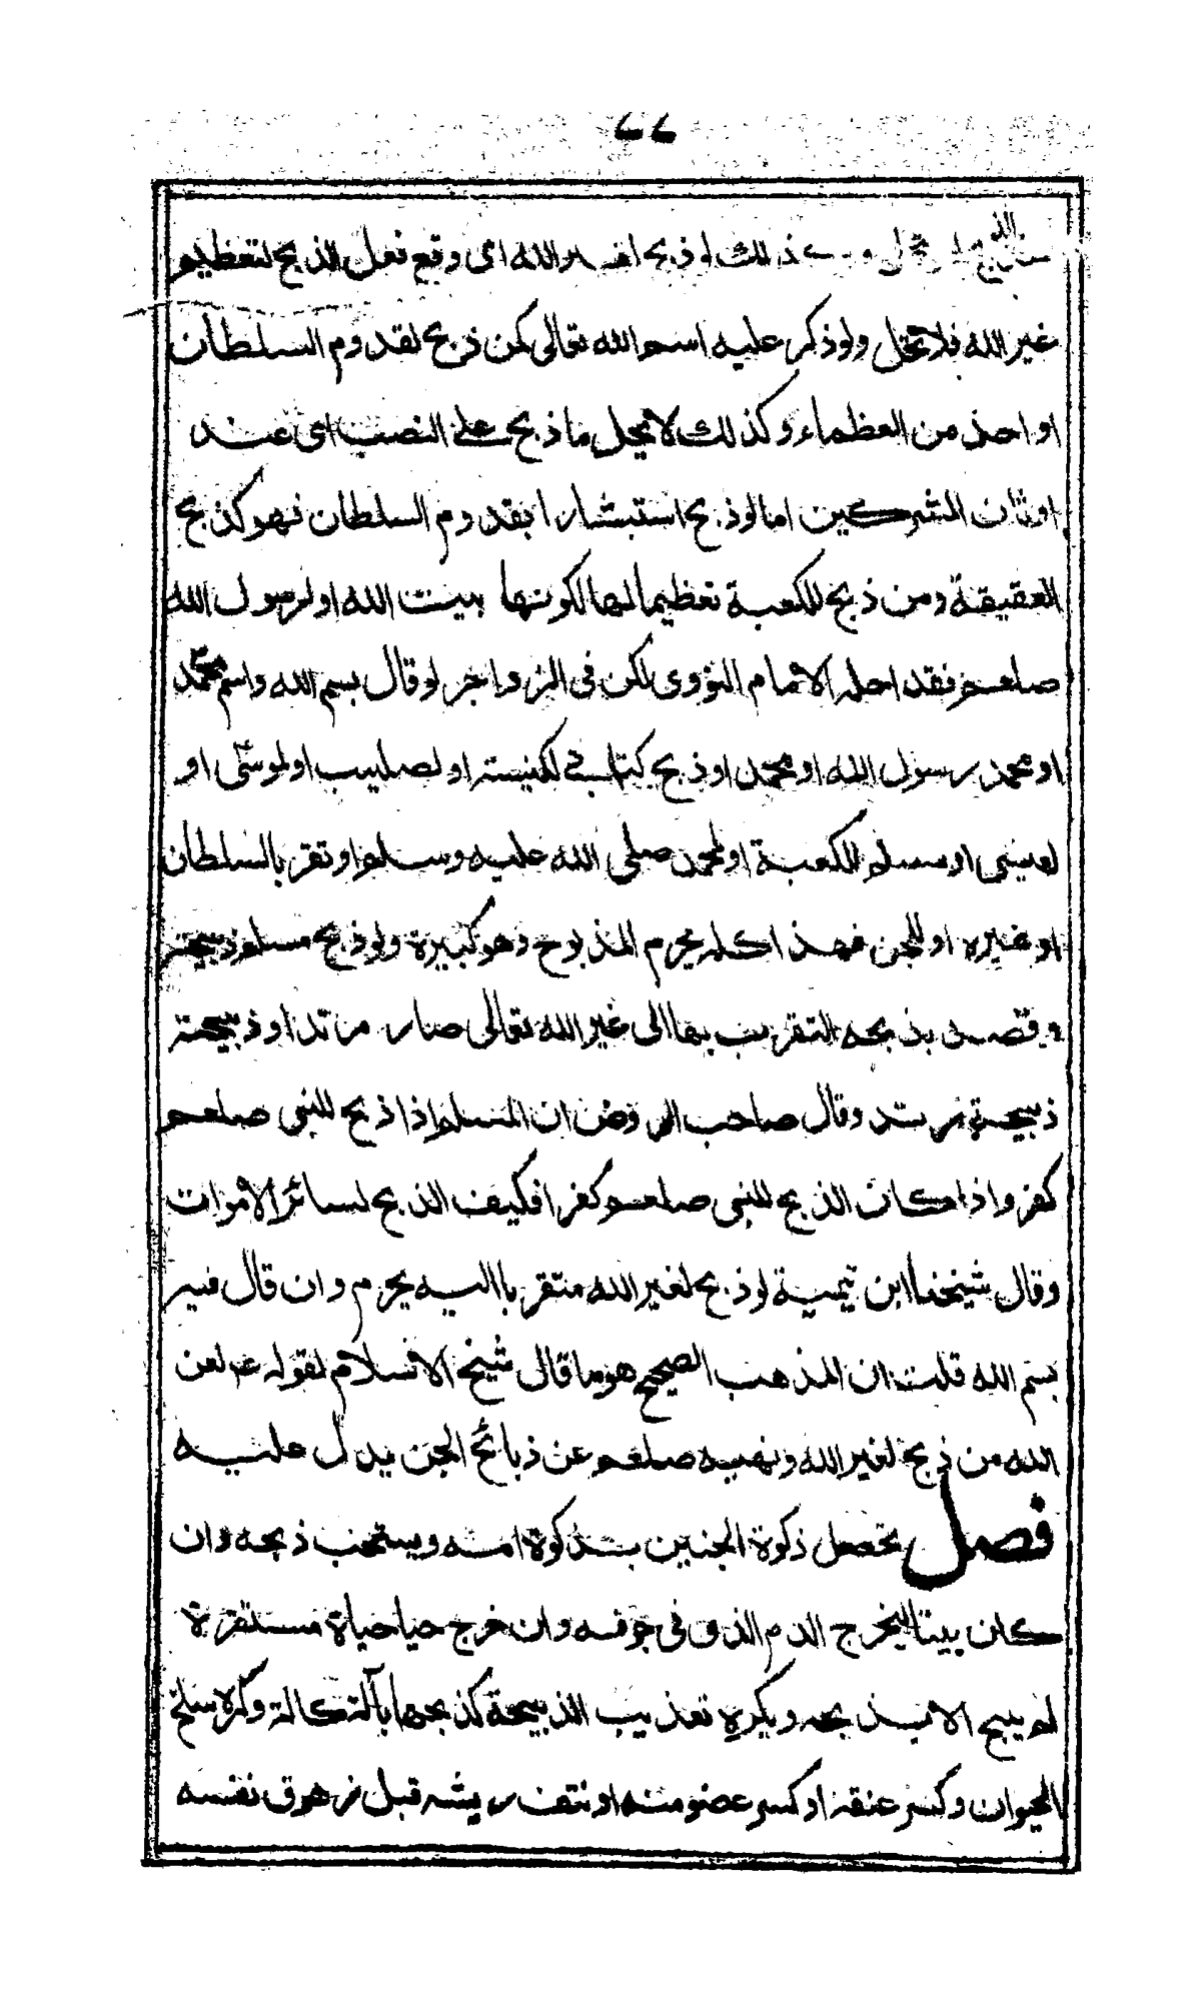 وكذلك لو ذبح لغير الله اى وقع فعل الذبح لتعظيم
غير الله فلا تحل ولو ذكر عليه اسم الله تعالى كمن ذبح لقدوم السلطان
او احد من العظماء وكذلك لا يحل ما ذبح على النصب اى عند
اوثان المشركين اما لو ذبح استبشارا بقدوم السلطان فهو كذبح
العقيقة ومن ذبح للكعبة تعظيما لها لكونها بيت الله او لرسول الله
صلعم فقد احله الامام النووى لكن فى الزواجر لو قال بسم الله واسم محمد
او محمد رسول الله او محمد او ذبح كتابي لكنيسة او لصليب او لموسى او
لعيسى او مسلم للكعبة او لمحمد صلى الله عليه وسلم او تقر بالسلطان
او غيره او للجن فهذا كله يحرم المذبوح وهو كبيرة ولو ذبح مسلم ذبيحة
وقصد بذبحه التقرب بها الى غير الله تعالى صار مرتدا وذبيحته
ذبيحة مرتد وقال صاحب الروض ان المسلم اذا ذبح للنبى صلعم
كفر واذا كان الذبح للنبى صلعم كفرا فكيف الذبح لسائر الاموات
وقال شيخنا ابن تيمية لو ذبح لغير الله متقربا اليه يحرم وان قال فيه
بسم الله قلت ان المذهب الصحيح هو ما قال شيخ الاسلام لقوله عم لعن
الله من ذبح لغير الله ونهيه صلعم عن ذبائح الجن يدل عليه
فصل تحصل ذكوة الجنين بذكوة امه ويستحب ذبحه وان
كان ميتا ليخرج الدم الذى فى جوفه وان خرج حيا حياة مستقرة
لم يبح الا بذبحه ويكره تعذيب الذبيحة كذبحها بآلة كالة وكره سلخ
الحيوان وكسر عنقه او كسر عضو منه او نتف ريشه قبل زهوق نفسه